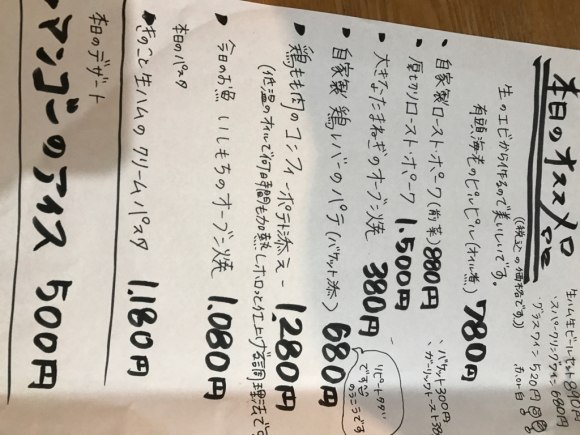 本日のオススメ
((税込の価格です))
生のエビから作るので美味しいです。
有頭海老のピルピル(オイル煮) 780円
・自家製ロースト・ポーク(前菜) 880円
・厚切りロースト・ポーク 1,500円
・大きなたまねぎのオーブン焼 380円
・自家製 鶏レバーのパテ(バケット添) 680円
・鶏もも肉のコンフィーポテト添え 1,280円
(低温のオイルで何時間も加熱しホロっと仕上げる調理法で
・今日のお魚 いしもちのオーブン焼 1,080円
本日のパスタ
・きのこと生ハムのクリームパスタ 1,180円
本日のデザート
マンゴーのアイス 500円
生ハム生ビールセット 890円
・スパークリングワイン 680円
・グラスワイン 520円
・バケット 300円
・ガーリックトースト 38